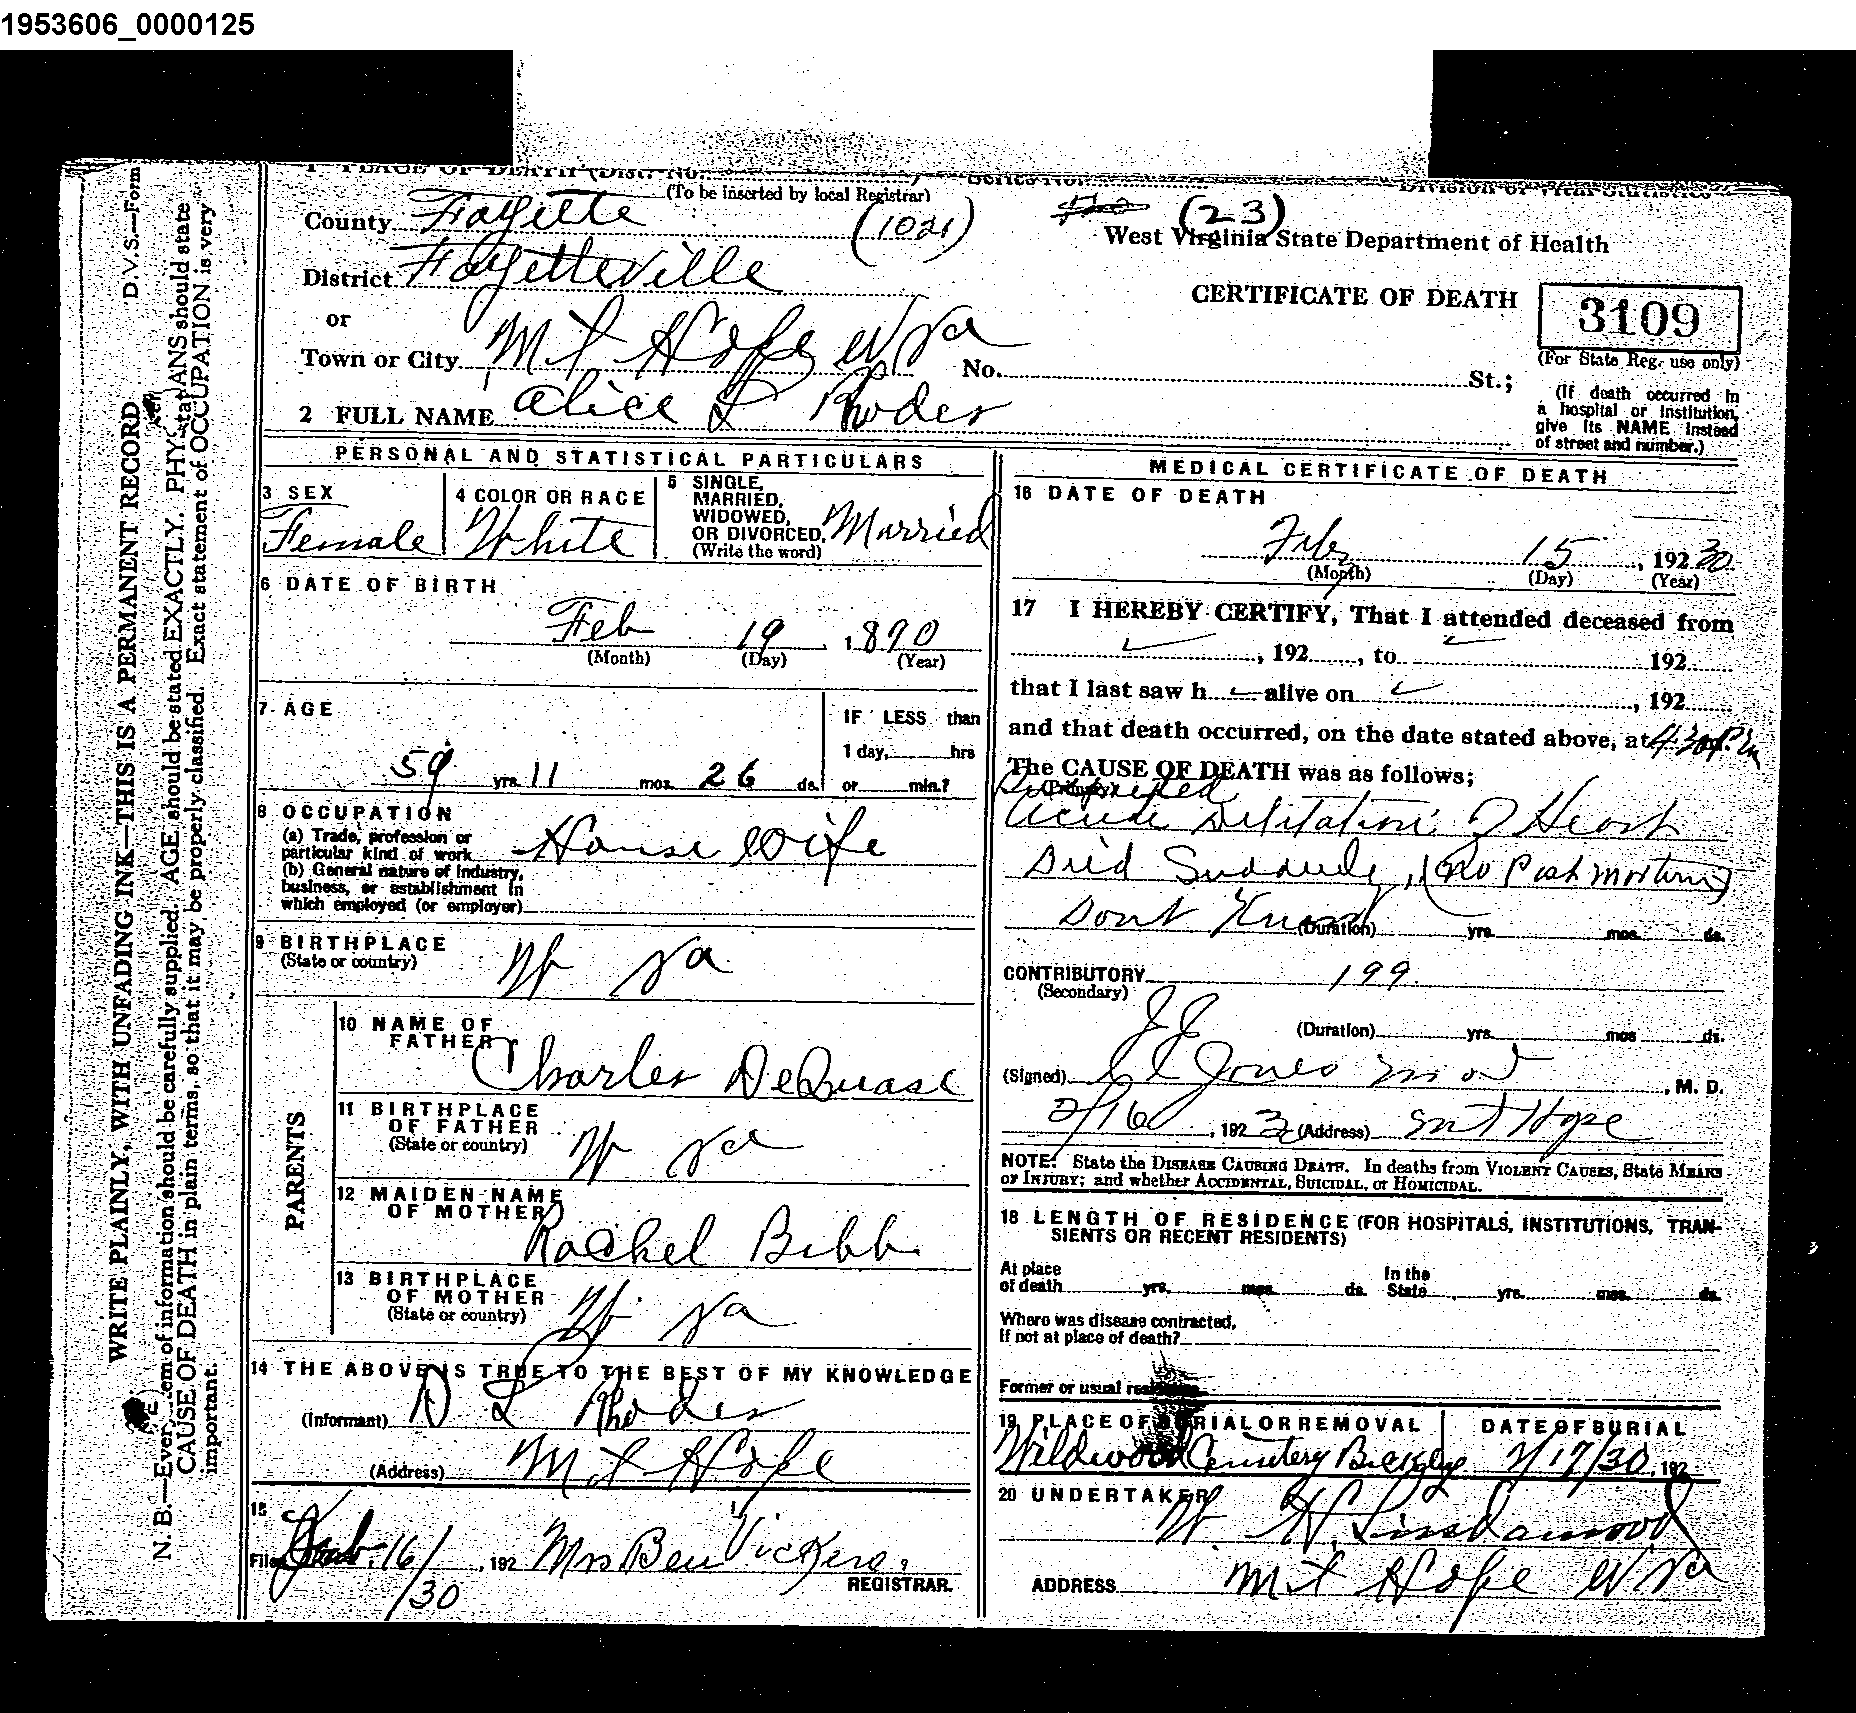 1953606_0000125
1 PLACE OF DEATH (Dist. No.
(To be inserted by local Registrar)
County Fayette (1021) (23)
West Virginia State Department of Health
District Fayetteville
CERTIFICATE OF DEATH
3109
(For State Reg. use only)
or
Town or City Mt Hope W Va No. St.;
(If death occurred in a hospital or institution, give its NAME instead of street and number.)
2 FULL NAME Alice L Rhodes
PERSONAL AND STATISTICAL PARTICULARS
3 SEX
Female
4 COLOR OR RACE
White
5 SINGLE, MARRIED, WIDOWED, OR DIVORCED, (Write the word)
Married
6 DATE OF BIRTH
Feb 19, 1870
(Month) (Day) (Year)
7 AGE
59 yrs. 11 mos. 26 ds.
IF LESS than
1 day, hrs
or min.?
8 OCCUPATION
(a) Trade, profession or particular kind of work House Wife
(b) General nature of industry, business, or establishment in which employed (or employer)
9 BIRTHPLACE
(State or country) W Va
PARENTS
10 NAME OF FATHER
Charles DeQuase
11 BIRTHPLACE OF FATHER
(State or country) W Va
12 MAIDEN NAME OF MOTHER
Rachel Bibb
13 BIRTHPLACE OF MOTHER
(State or country) W Va
14 THE ABOVE IS TRUE TO THE BEST OF MY KNOWLEDGE
(Informant) D L Rhodes
(Address) Mt Hope
15
Filed Feb. 16/30, 192 Mrs Ben Vickers,
REGISTRAR.
MEDICAL CERTIFICATE OF DEATH
16 DATE OF DEATH
Feb 15, 192 30
(Month) (Day) (Year)
17 I HEREBY CERTIFY, That I attended deceased from
, 192 , to 192
that I last saw h alive on , 192
and that death occurred, on the date stated above, at 4:30 P.m
The CAUSE OF DEATH was as follows;
Acute Dilitation of Heart
Died Suddenly, (No Post mortem)
Dont Know (Duration) yrs. mos. ds.
CONTRIBUTORY 199
(Secondary)
(Duration) yrs. mos ds.
(Signed) Jones M D, M. D.
2/16, 192 30 (Address) Mt Hope
NOTE: State the DISEASE CAUSING DEATH. In deaths from VIOLENT CAUSES, State MEANS
OF INJURY; and whether ACCIDENTAL, SUICIDAL, or HOMICIDAL.
18 LENGTH OF RESIDENCE (FOR HOSPITALS, INSTITUTIONS, TRAN-
SIENTS OR RECENT RESIDENTS)
At place of death yrs. mos. ds. In the State yrs. mos. ds.
Where was disease contracted,
If not at place of death?
Former or usual residence
19 PLACE OF BURIAL OR REMOVAL
Wildwood Cemetery Beckley
DATE OF BURIAL
2/17/30, 192
20 UNDERTAKER
W. H.
ADDRESS Mt Hope W Va
D.V.S.—Form
WRITE PLAINLY, WITH UNFADING INK—THIS IS A PERMANENT RECORD
N. B.—Every item of information should be carefully supplied. AGE should be stated EXACTLY. PHYSICIANS should state
CAUSE OF DEATH in plain terms, so that it may be properly classified. Exact statement of OCCUPATION is very
important.